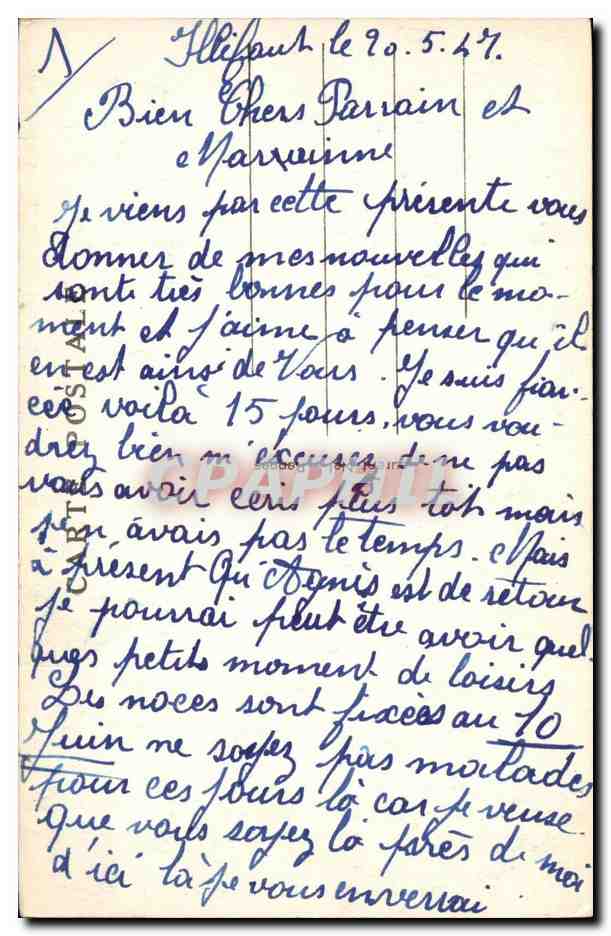 1)
Illifaut le 20.5.47.
Bien Chers Parrain et
Marrainne
Je viens par cette présente vous
donner de mes nouvelles qui
sonts très bonnes pour le mo-
ment et j'aime à penser qu'il
en est ainsi de Vous. Je suis fian-
cée voilà 15 jours, vous vou-
drez bien m'excuser de ne pas
vous avoir ecris plus tôt mais
je n'avais pas le temps. Mais
à présent Qu'Agnès est de retour
je pourrai peut être avoir quel-
ques petits moment de loisirs
Les noces sont fixées au 10
Juin ne soyez pas malades
pour ces jours là car je veuse
que vous soyez là près de moi
d'ici là je vous enverrai
CARTE POSTALE
CPAPHIL